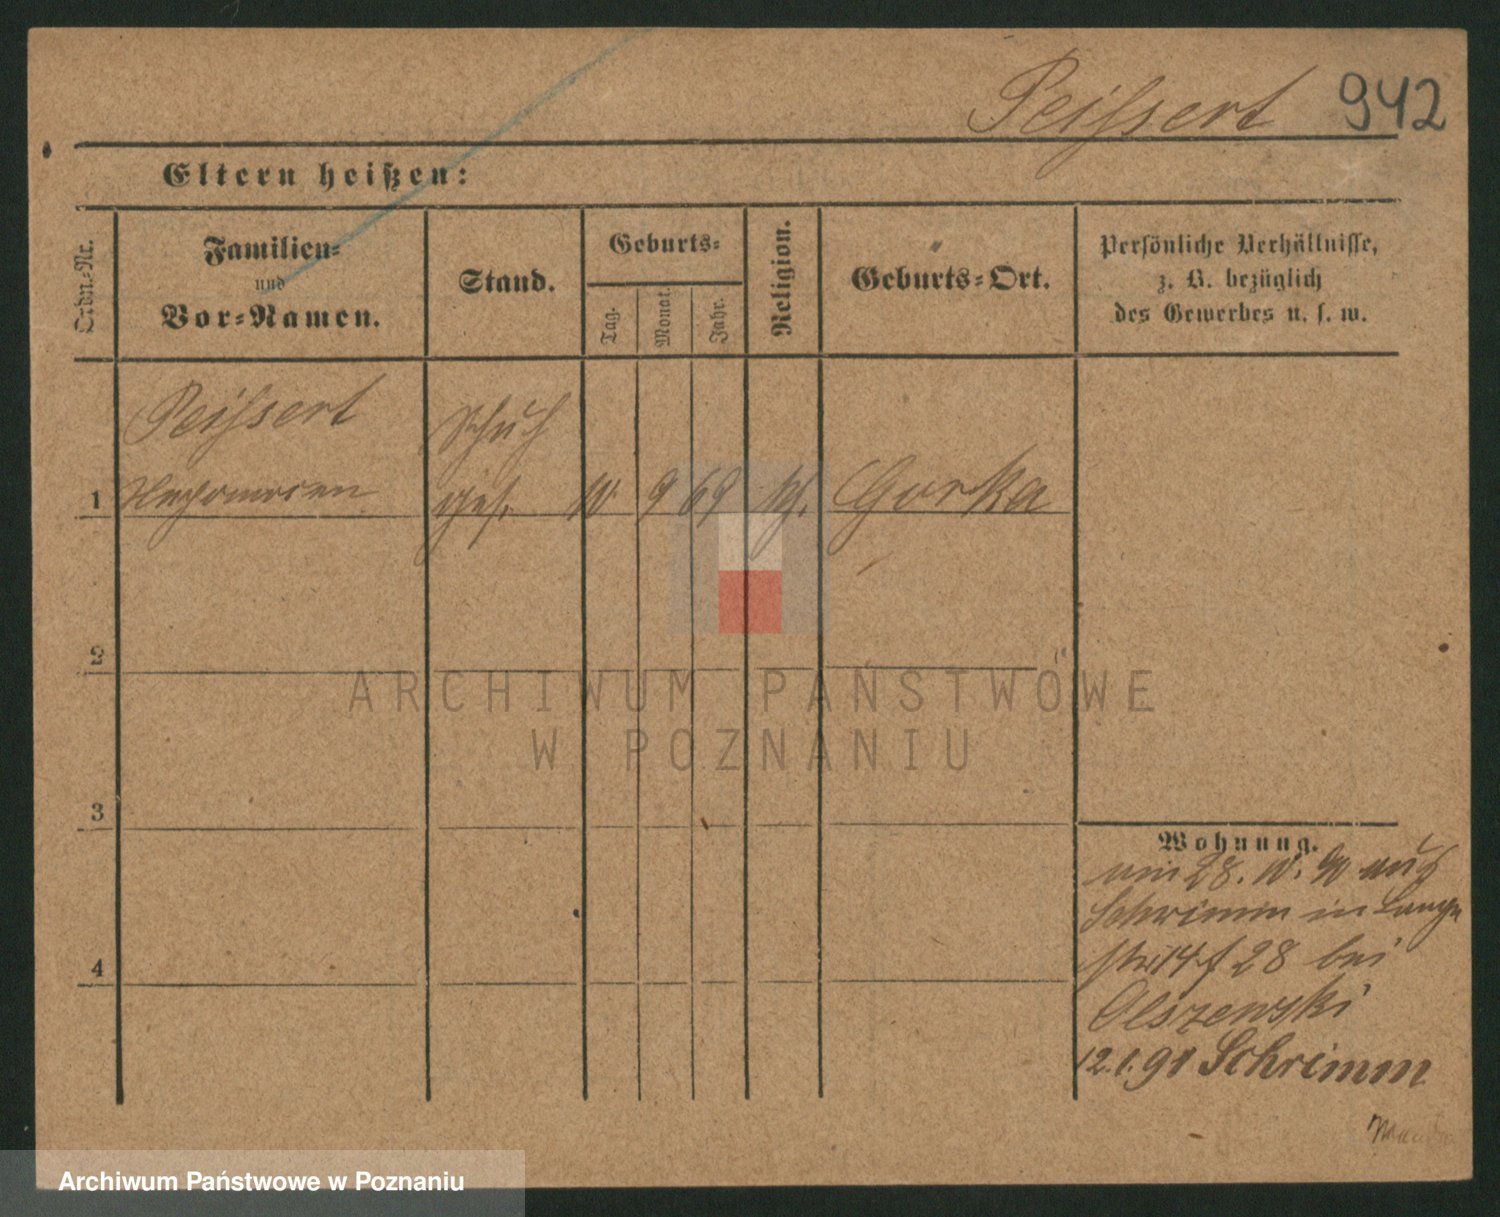 Peissert 942
Eltern heißen:
Ordn.-Nr.
Familien-
und
Vor-Namen.
Stand.
Geburts-
Tag.
Monat.
Jahr.
Religion.
Geburts-Ort.
Persönliche Verhältnisse,
z. B. bezüglich
des Gewerbes u. s. w.
Peissert
Schuh
1 Nepomucen ges. 10 9 69 kth. Gorka
2
3
4
Wohnung.
am 28. 10. 90 aus
Schrimm in Lange
str 14 f 28 bei
Olszewski
12.1.91 Schrimm
ARCHIWUM PAŃSTWOWE
W POZNANIU
Archiwum Państwowe w Poznaniu